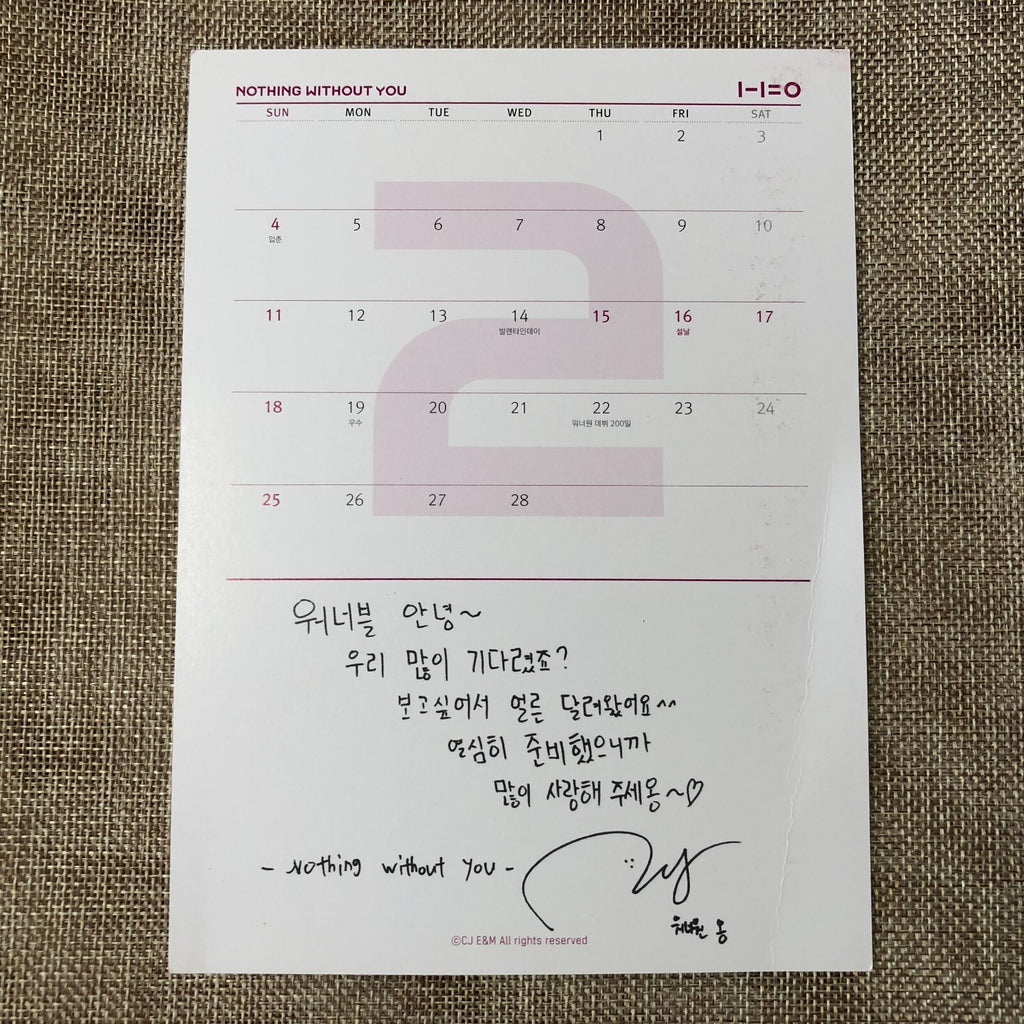 NOTHING WITHOUT YOU 1-1=0
SUN MON TUE WED THU FRI SAT
1 2 3
4 5 6 7 8 9 10
입춘
11 12 13 14 15 16 17
발렌타인데이 설날
18 19 20 21 22 23 24
우수 워너원 데뷔 200일
25 26 27 28
2
워너블 안녕~
우리 많이 기다렸죠?
보고싶어서 얼른 달려왔어요^^
열심히 준비했으니까
많이 사랑해 주세옹~♡
- Nothing without you -
워너원 옹
©CJ E&M All rights reserved